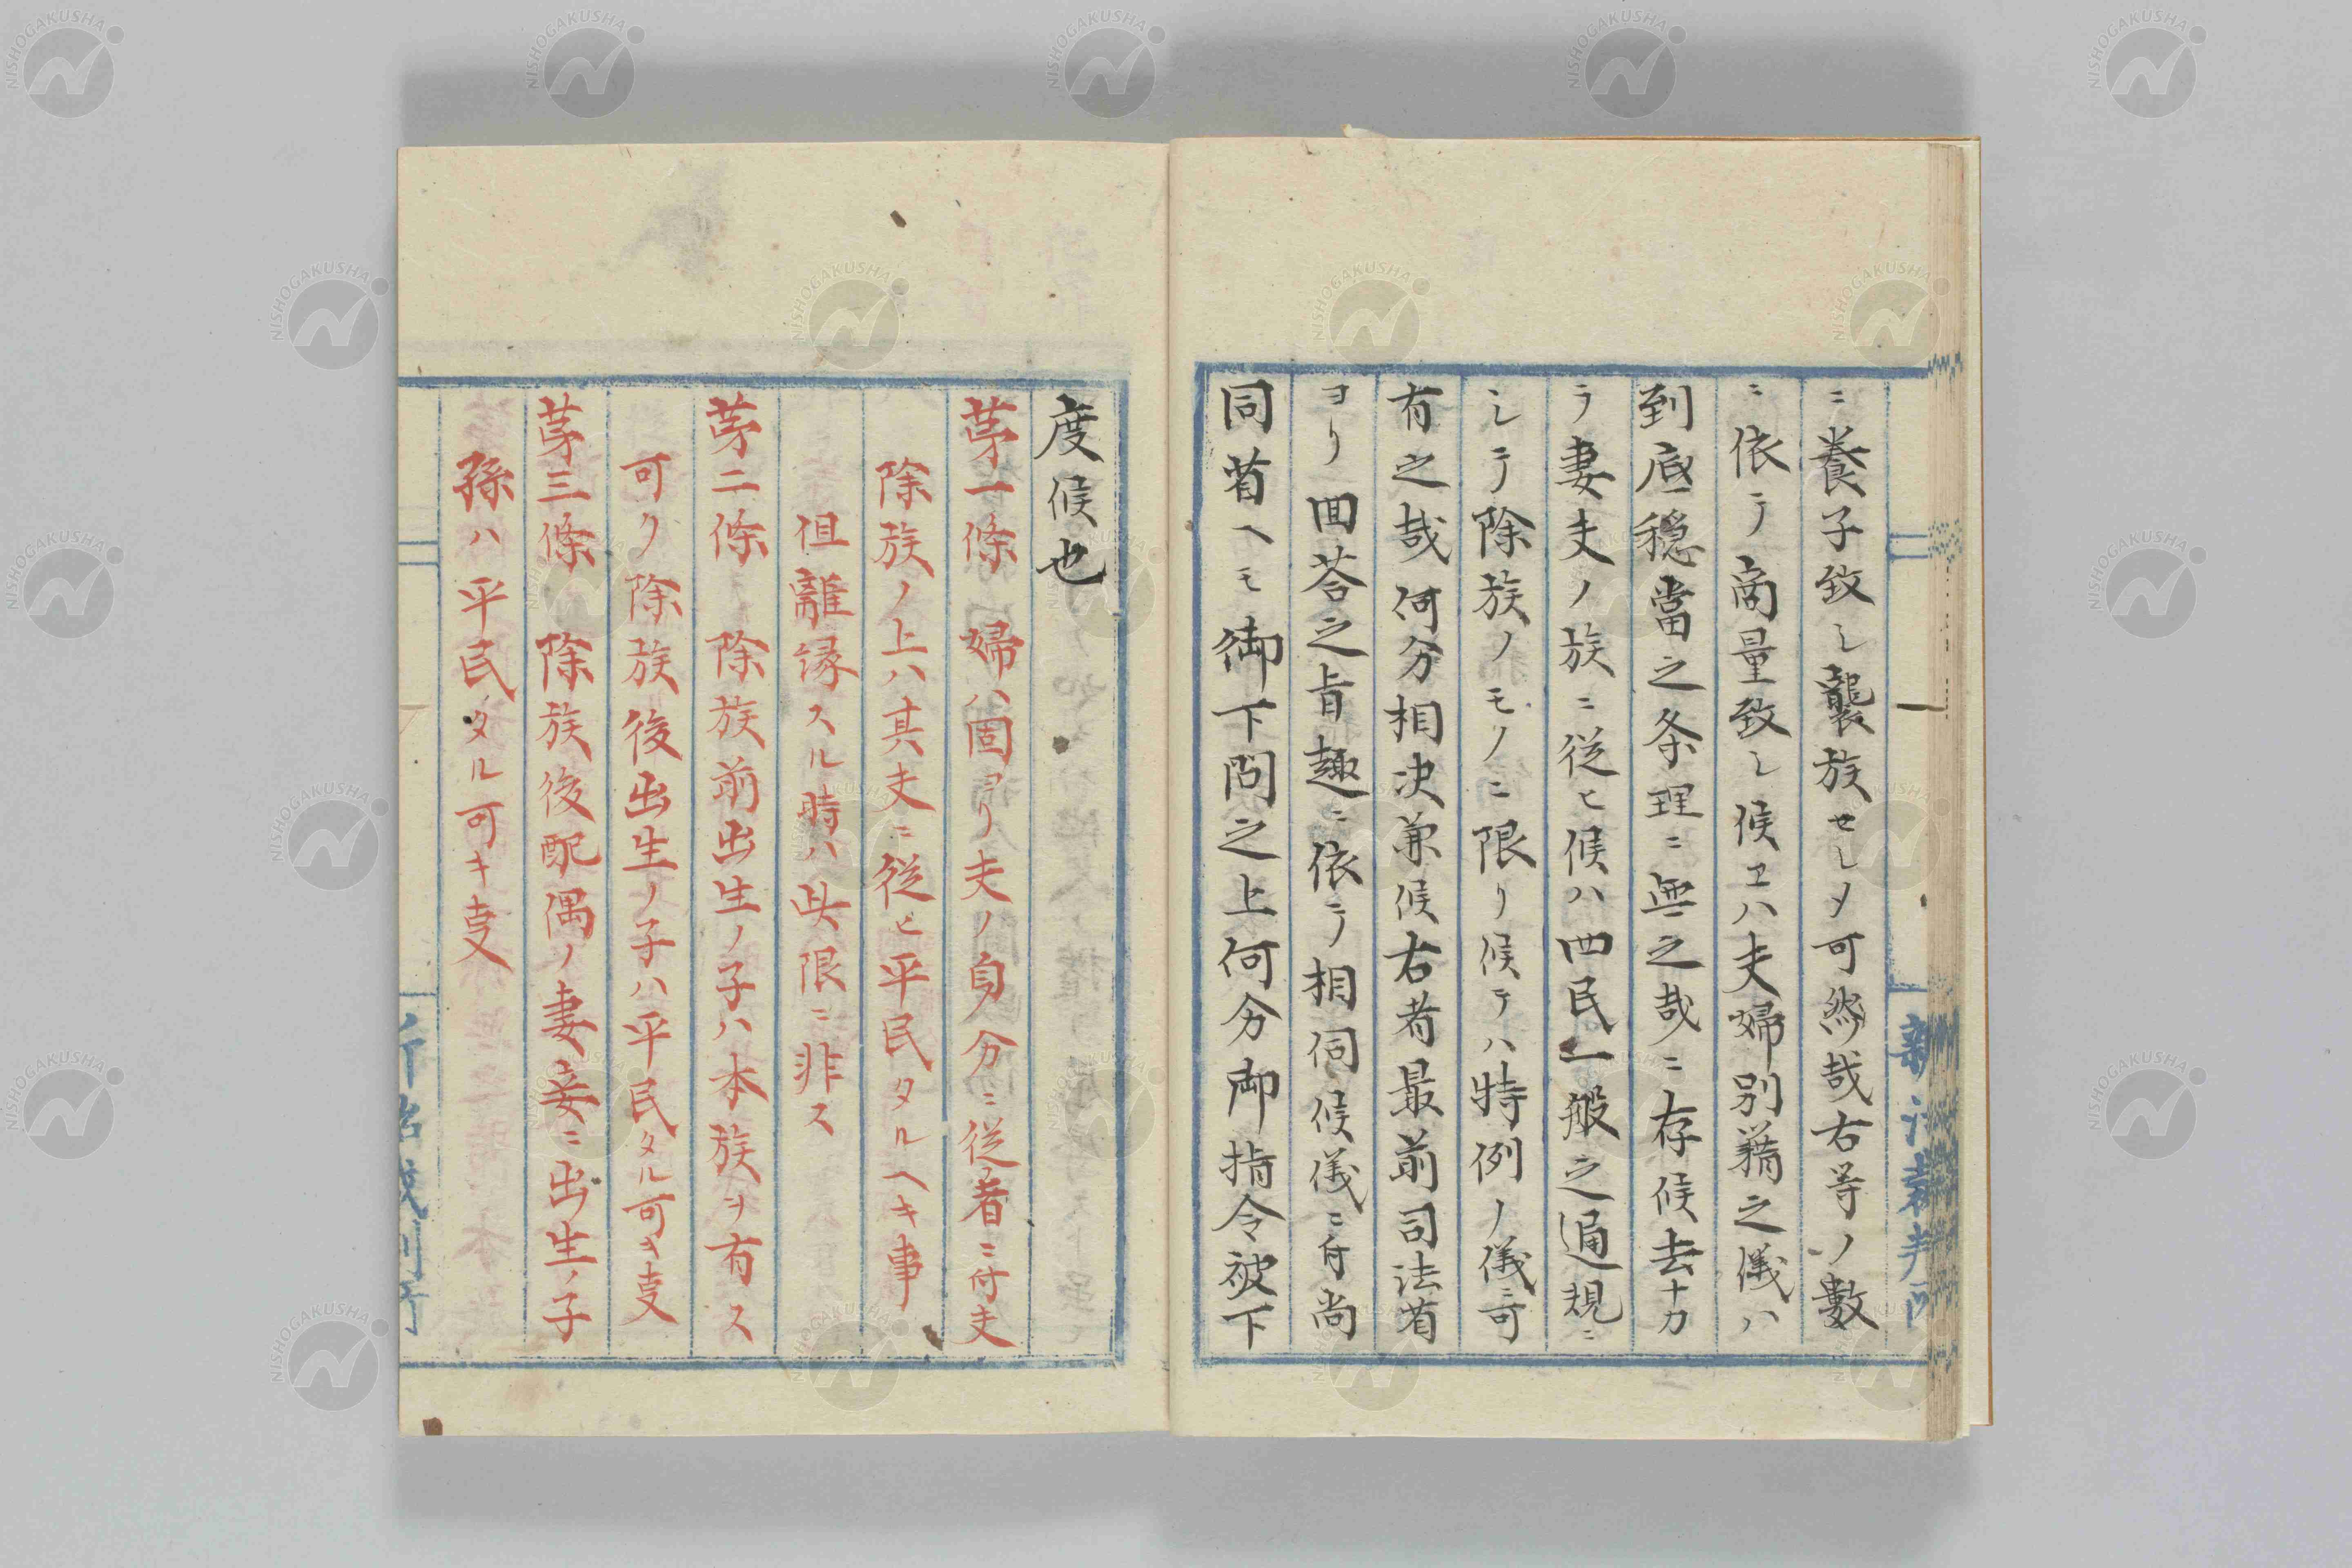 ニ養子致シ襲族セシメ可然哉右等ノ數
ニ依テ商量致シ候ヱハ夫婦別籍之儀ハ
到底穏當之条理ニ無之哉ニ存候去十カ
ラ妻夫ノ族ニ従ヒ候ハ四民一般之通規ニ
シテ除族ノモノニ限リ候テハ特例ノ儀ニ可
有之哉何分相决兼候右者最前司法省
ヨリ回荅之旨趣ニ依テ相伺候儀ニ付尚
同省ヘモ御下問之上何分御指令被下
度候也
苐一條 婦ハ固ヨリ夫ノ身分ニ従フ者ニ付夫
除族ノ上ハ其夫ニ從ヒ平民タルヘキ事
但離縁スル時ハ此限ニ非ス
苐二條 除族前出生ノ子ハ本族ヲ有ス
可ク除族後出生ノ子ハ平民タル可キ𠮷
苐三條 除族後配偶ノ妻妾ニ出生ノ子
孫ハ平民タル可キ𠮷
新治裁判所
新治裁判所
NISHOGAKUSHA